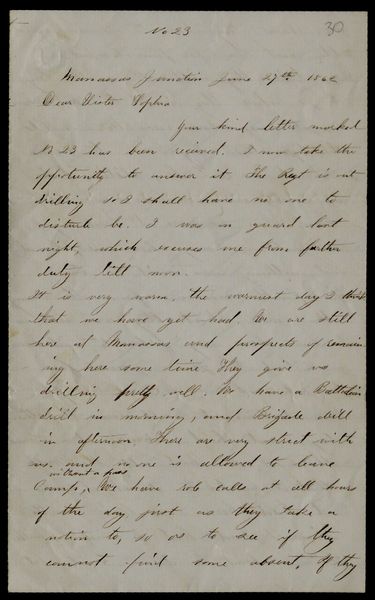 No 23
30
Manassas Junction June 27th 1862
Dear Sister Sophia
Your kind letter marked
No 23 has been recieved. I now take the
opportunity to answer it The Regt is out
drilling so I shall have no one to
disturb be. I was on guard last
night, which excuses me from further
duty till noon.
It is very warm, the warmest day I think
that we have yet had. We are still
here at Manassas and prospects of remain
ing here some time. They give us
drilling pretty well. We have a Battalion
drill in morning, and Brigade drill
in afternoon. There are very strict with
us. and no one is allowed to leave
without a pass
Camp, We have role calls at all hours
of the day just as they take a
notion to, so as to see if they
cannot find some absent, If they